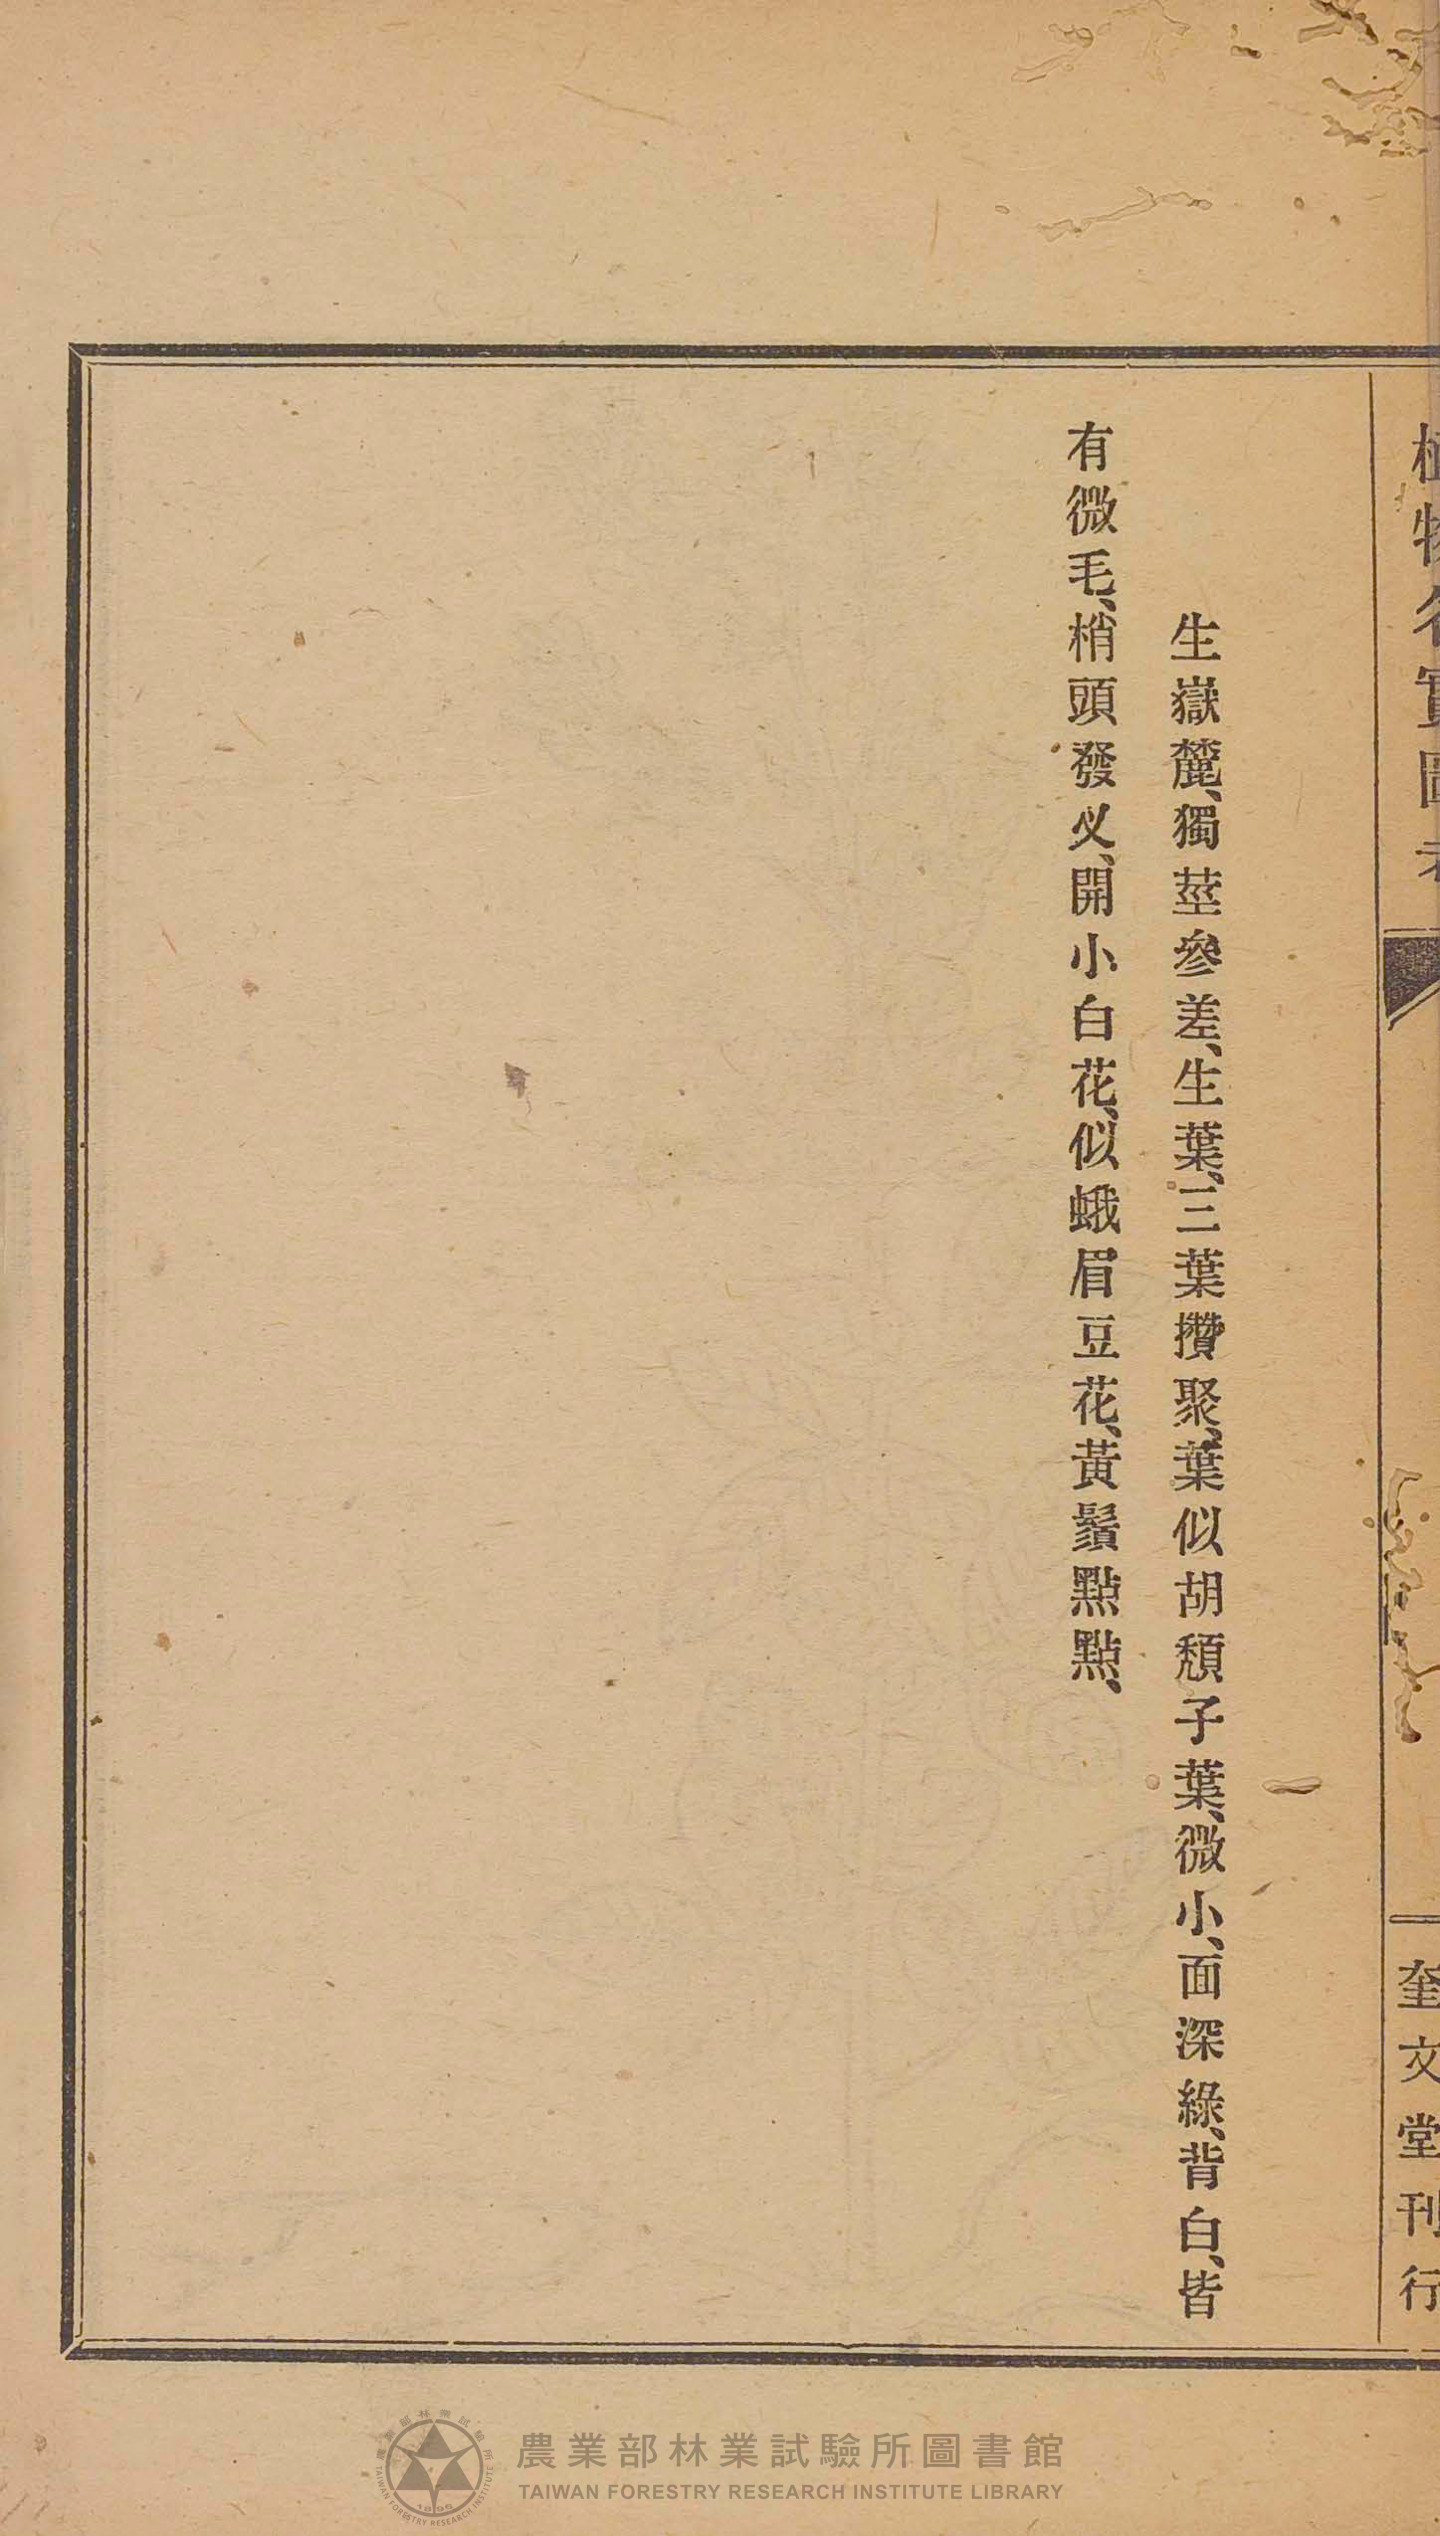 植物名實圖考
奎文堂刊行
生嶽麓、獨莖參差、生葉、三葉攢聚、葉似胡頹子葉、微小、面深綠、背白、皆
有微毛、梢頭發义、開小白花、似蛾眉豆花、黃鬚點點、
農業部林業試驗所圖書館
TAIWAN FORESTRY RESEARCH INSTITUTE LIBRARY
農業部林業試驗所
TAIWAN FORESTRY RESEARCH INSTITUTE
1895